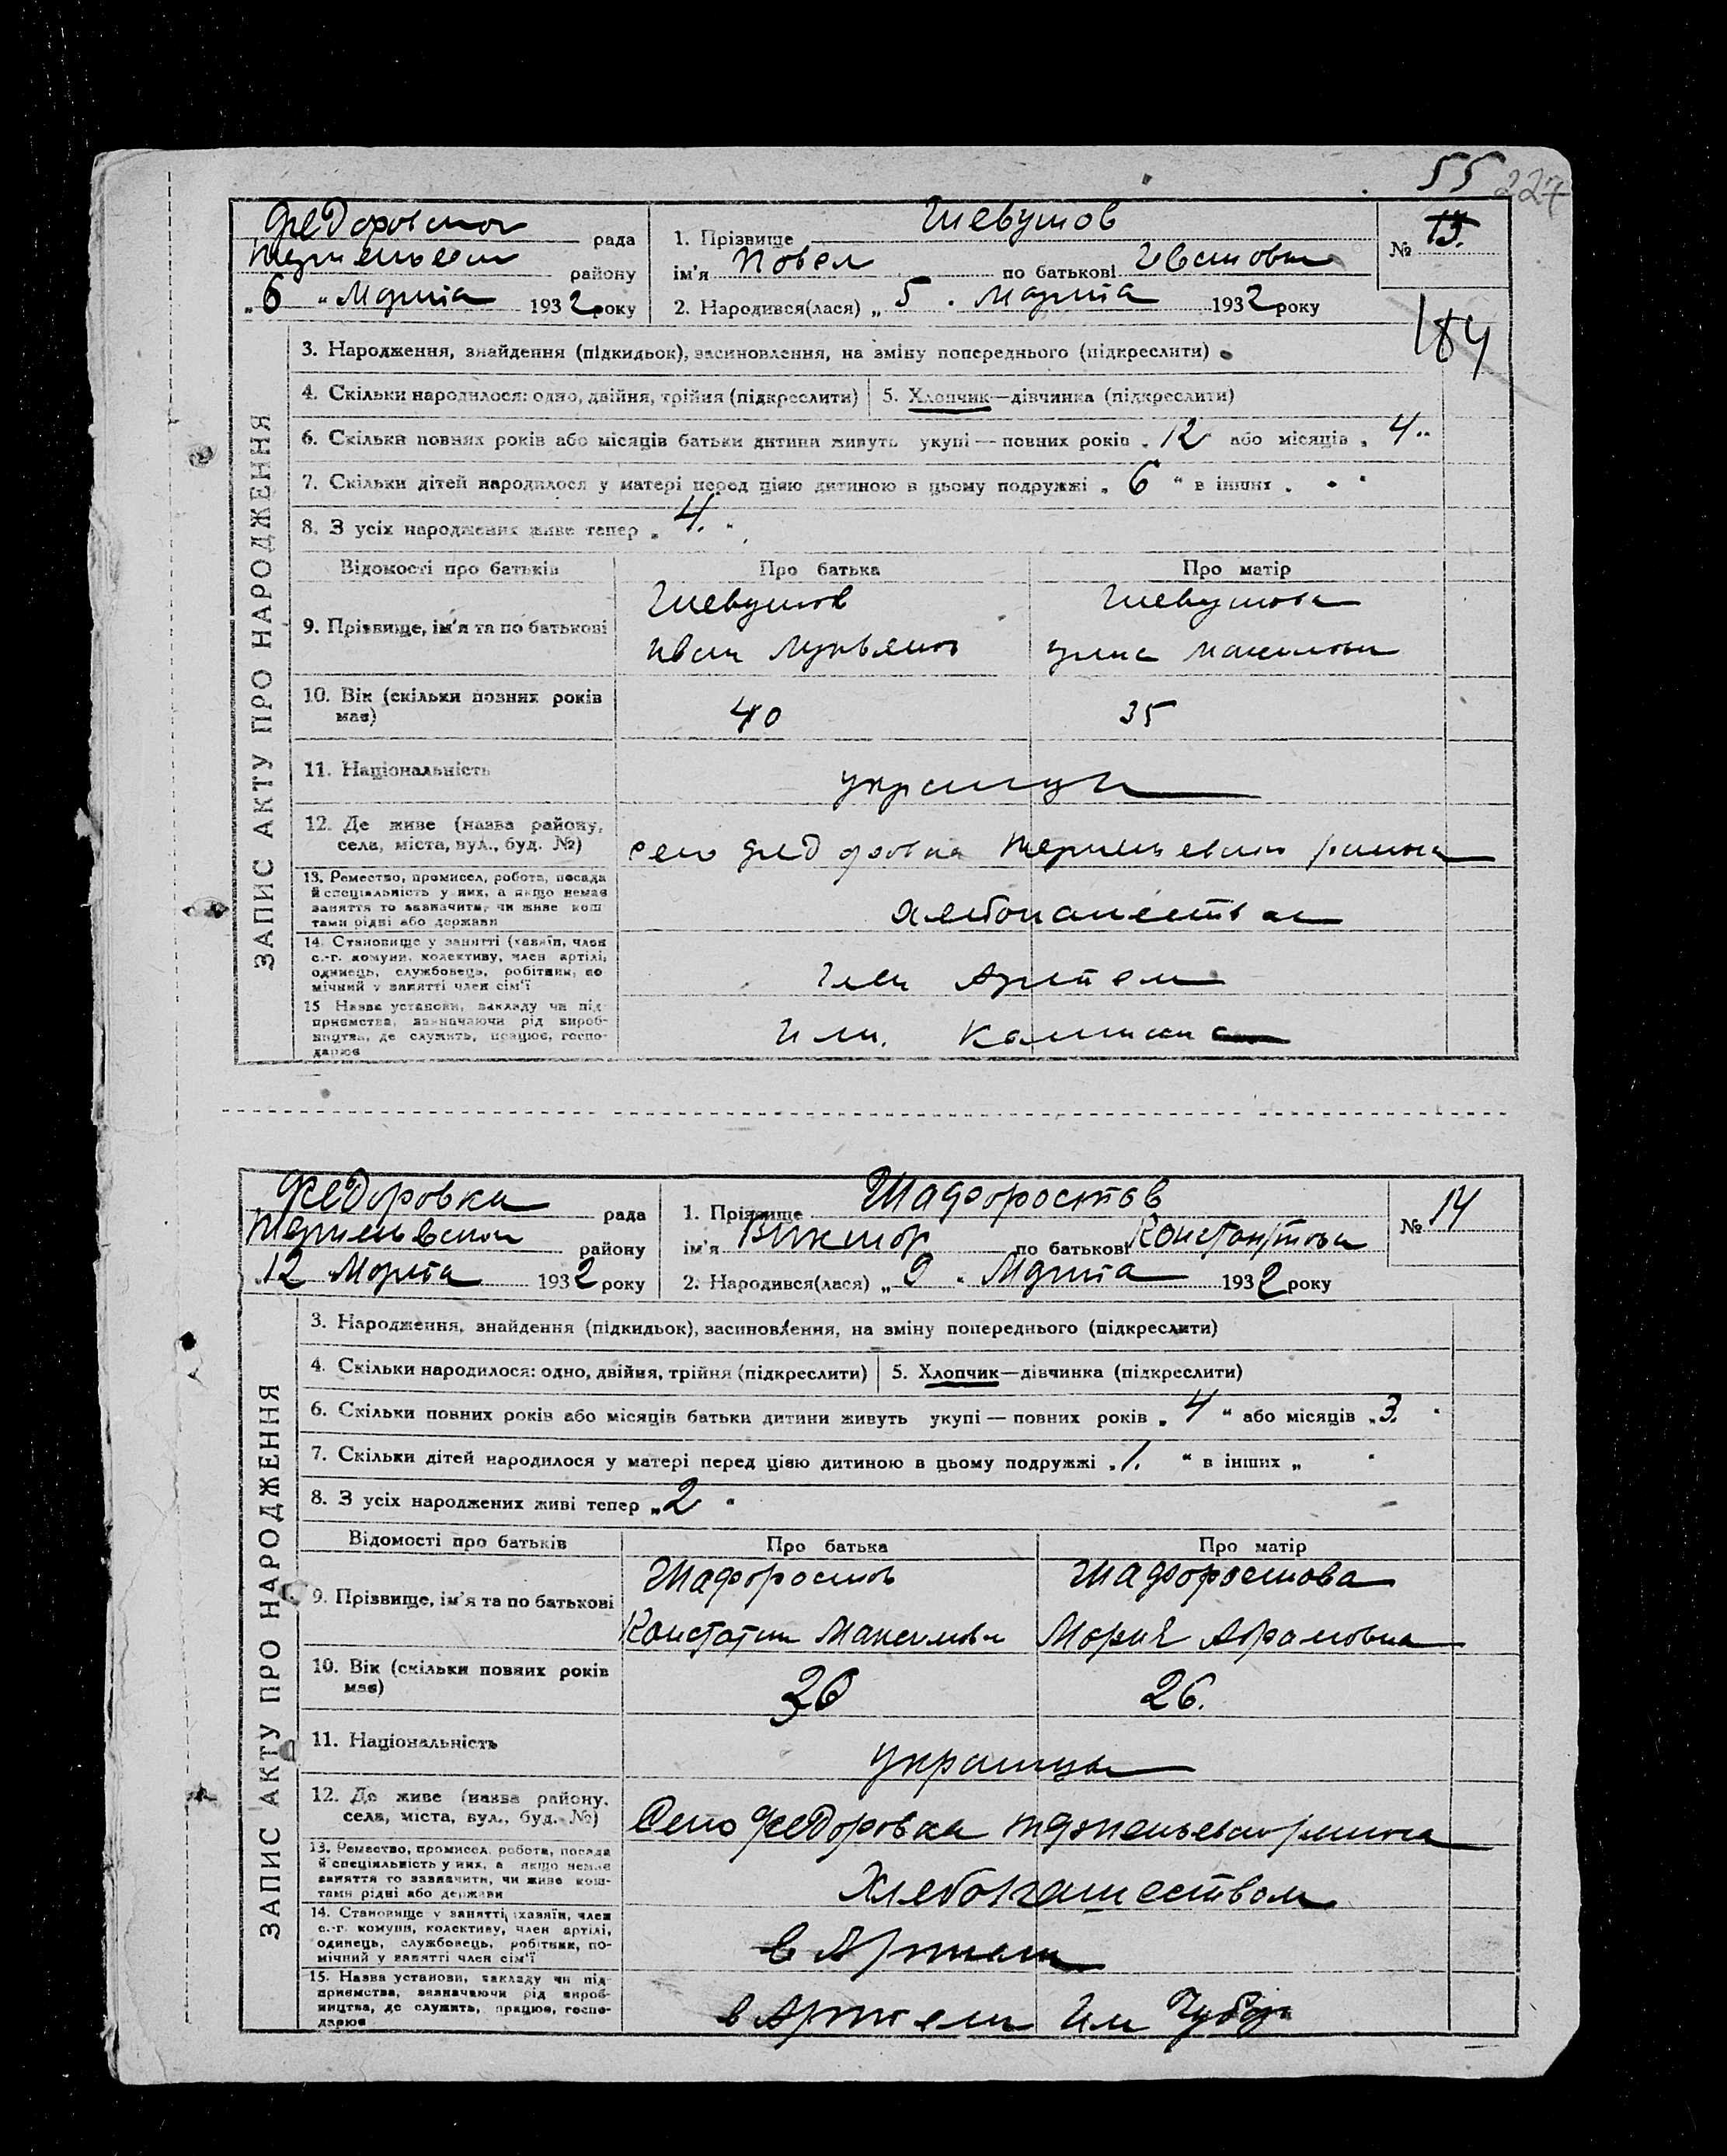 55 227
Федоровской рада
району
„6" Марта 1932 року
1. Прізвище Шевушов
ім'я Повел по батькові Ивановичь
2. Народився(лася) „5" Марта 1932 року
№ 13.
184
ЗАПИС АКТУ ПРО НАРОДЖЕННЯ
3. Народження, знайдення (підкидьок), засиновлення, на зміну попереднього (підкреслити)
4. Скільки народилося: одно, двійня, трійня (підкреслити) 5. Хлопчик—дівчинка (підкреслити)
6. Скільки повних років або місяців батьки дитини живуть укупі — повних років „12" або місяців „4"
7. Скільки дітей народилося у матері перед цією дитиною в цьому подружжі „6" в інших „ "
8. З усіх народжених живе тепер „4."
Відомості про батьків Про батька Про матір
Шевушов Шевушова
9. Прізвище, ім'я та по батькові
Иван Лукьянов Улиса Максимовн
10. Вік (скільки повних років має) 40 35
11. Національність украинцы
12. Де живе (назва району, села, міста, вул., буд. №)
село Федоровка района
13. Ремество, промисел, робота, посада й спеціальність у них, а якщо немає заняття то зазначити, чи живе коштами рідні або держави
хлебопашество
14. Становище у занятті (хазяїн, член с.-г. комуни, колективу, член артілі, одинець, службовець, робітник, помічний у занятті член сім'ї
член Артели
15 Назва установи, закладу чи підприємства, зазначаючи рід виробництва, де служить, працює, господарює
Им. Калинина
Федоровка рада
району
„12 Марта 1932 року
1. Прізвище Шафоростов
ім'я Виктор по батькові Константинович
2. Народився(лася) „9" Марта 1932 року
№ 14
ЗАПИС АКТУ ПРО НАРОДЖЕННЯ
3. Народження, знайдення (підкидьок), засиновлення, на зміну попереднього (підкреслити)
4. Скільки народилося: одно, двійня, трійня (підкреслити) 5. Хлопчик—дівчинка (підкреслити)
6. Скільки повних років або місяців батьки дитини живуть укупі — повних років „4" або місяців „3."
7. Скільки дітей народилося у матері перед цією дитиною в цьому подружжі „1." в інших „ "
8. З усіх народжених живі тепер „2"
Відомості про батьків Про батька Про матір
Шафоростов Шафоростова
9. Прізвище, ім'я та по батькові
Констатин Максимови Мория Абрамовна
10. Вік (скільки повних років має) 26.
11. Національність украинцы
12. Де живе (назва району, села, міста, вул., буд. №)
Село Федоровка района
13. Ремество, промисел, робота, посада й спеціальність у них, а якщо немає заняття то зазначити, чи живе коштами рідні або держави
Хлебопашеством
14. Становище у занятті (хазяїн, член с.-г. комуни, колективу, член артілі, одинець, службовець, робітник, помічний у занятті член сім'ї
в Артели
15. Назва установи, закладу чи підприємства, зазначаючи рід виробництва, де служить, працює, господарює
в Артели Им Чубар